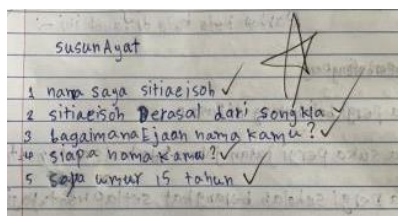 susun Ayat
1 nama saya sitiaeisoh
2 sitiaeisoh berasal dari songkla
3 bagaimana Ejaan nama kamu?
4 siapa nama kamu?
5 saya umur 15 tahun